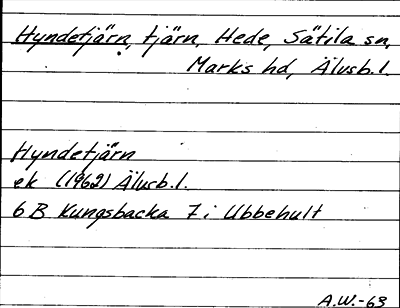 Hyndetjärn, tjärn, Hede, Sätila sn,
Marks hd, Älvsb.l.
Hyndetjärn
ek (1962) Älvsb.l.
6 B Kungsbacka 7 i Ubbehult
A.W.-63